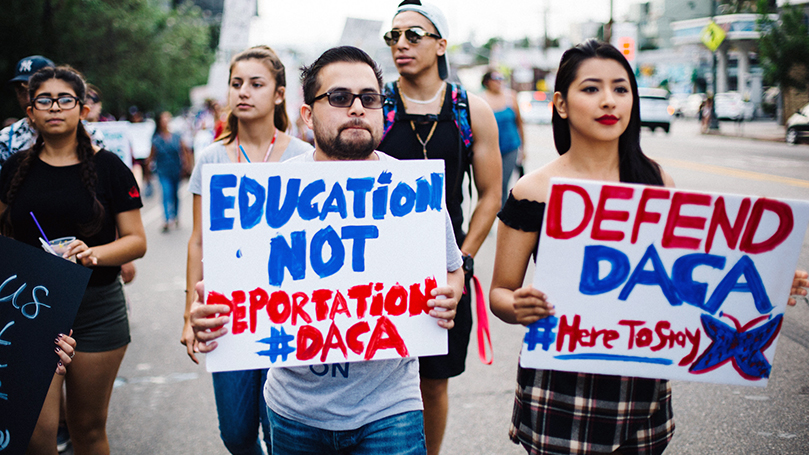 EDUCATION
NOT
DEPORTATION
#DACA
DEFEND
DACA
#HereToStay
us
ON